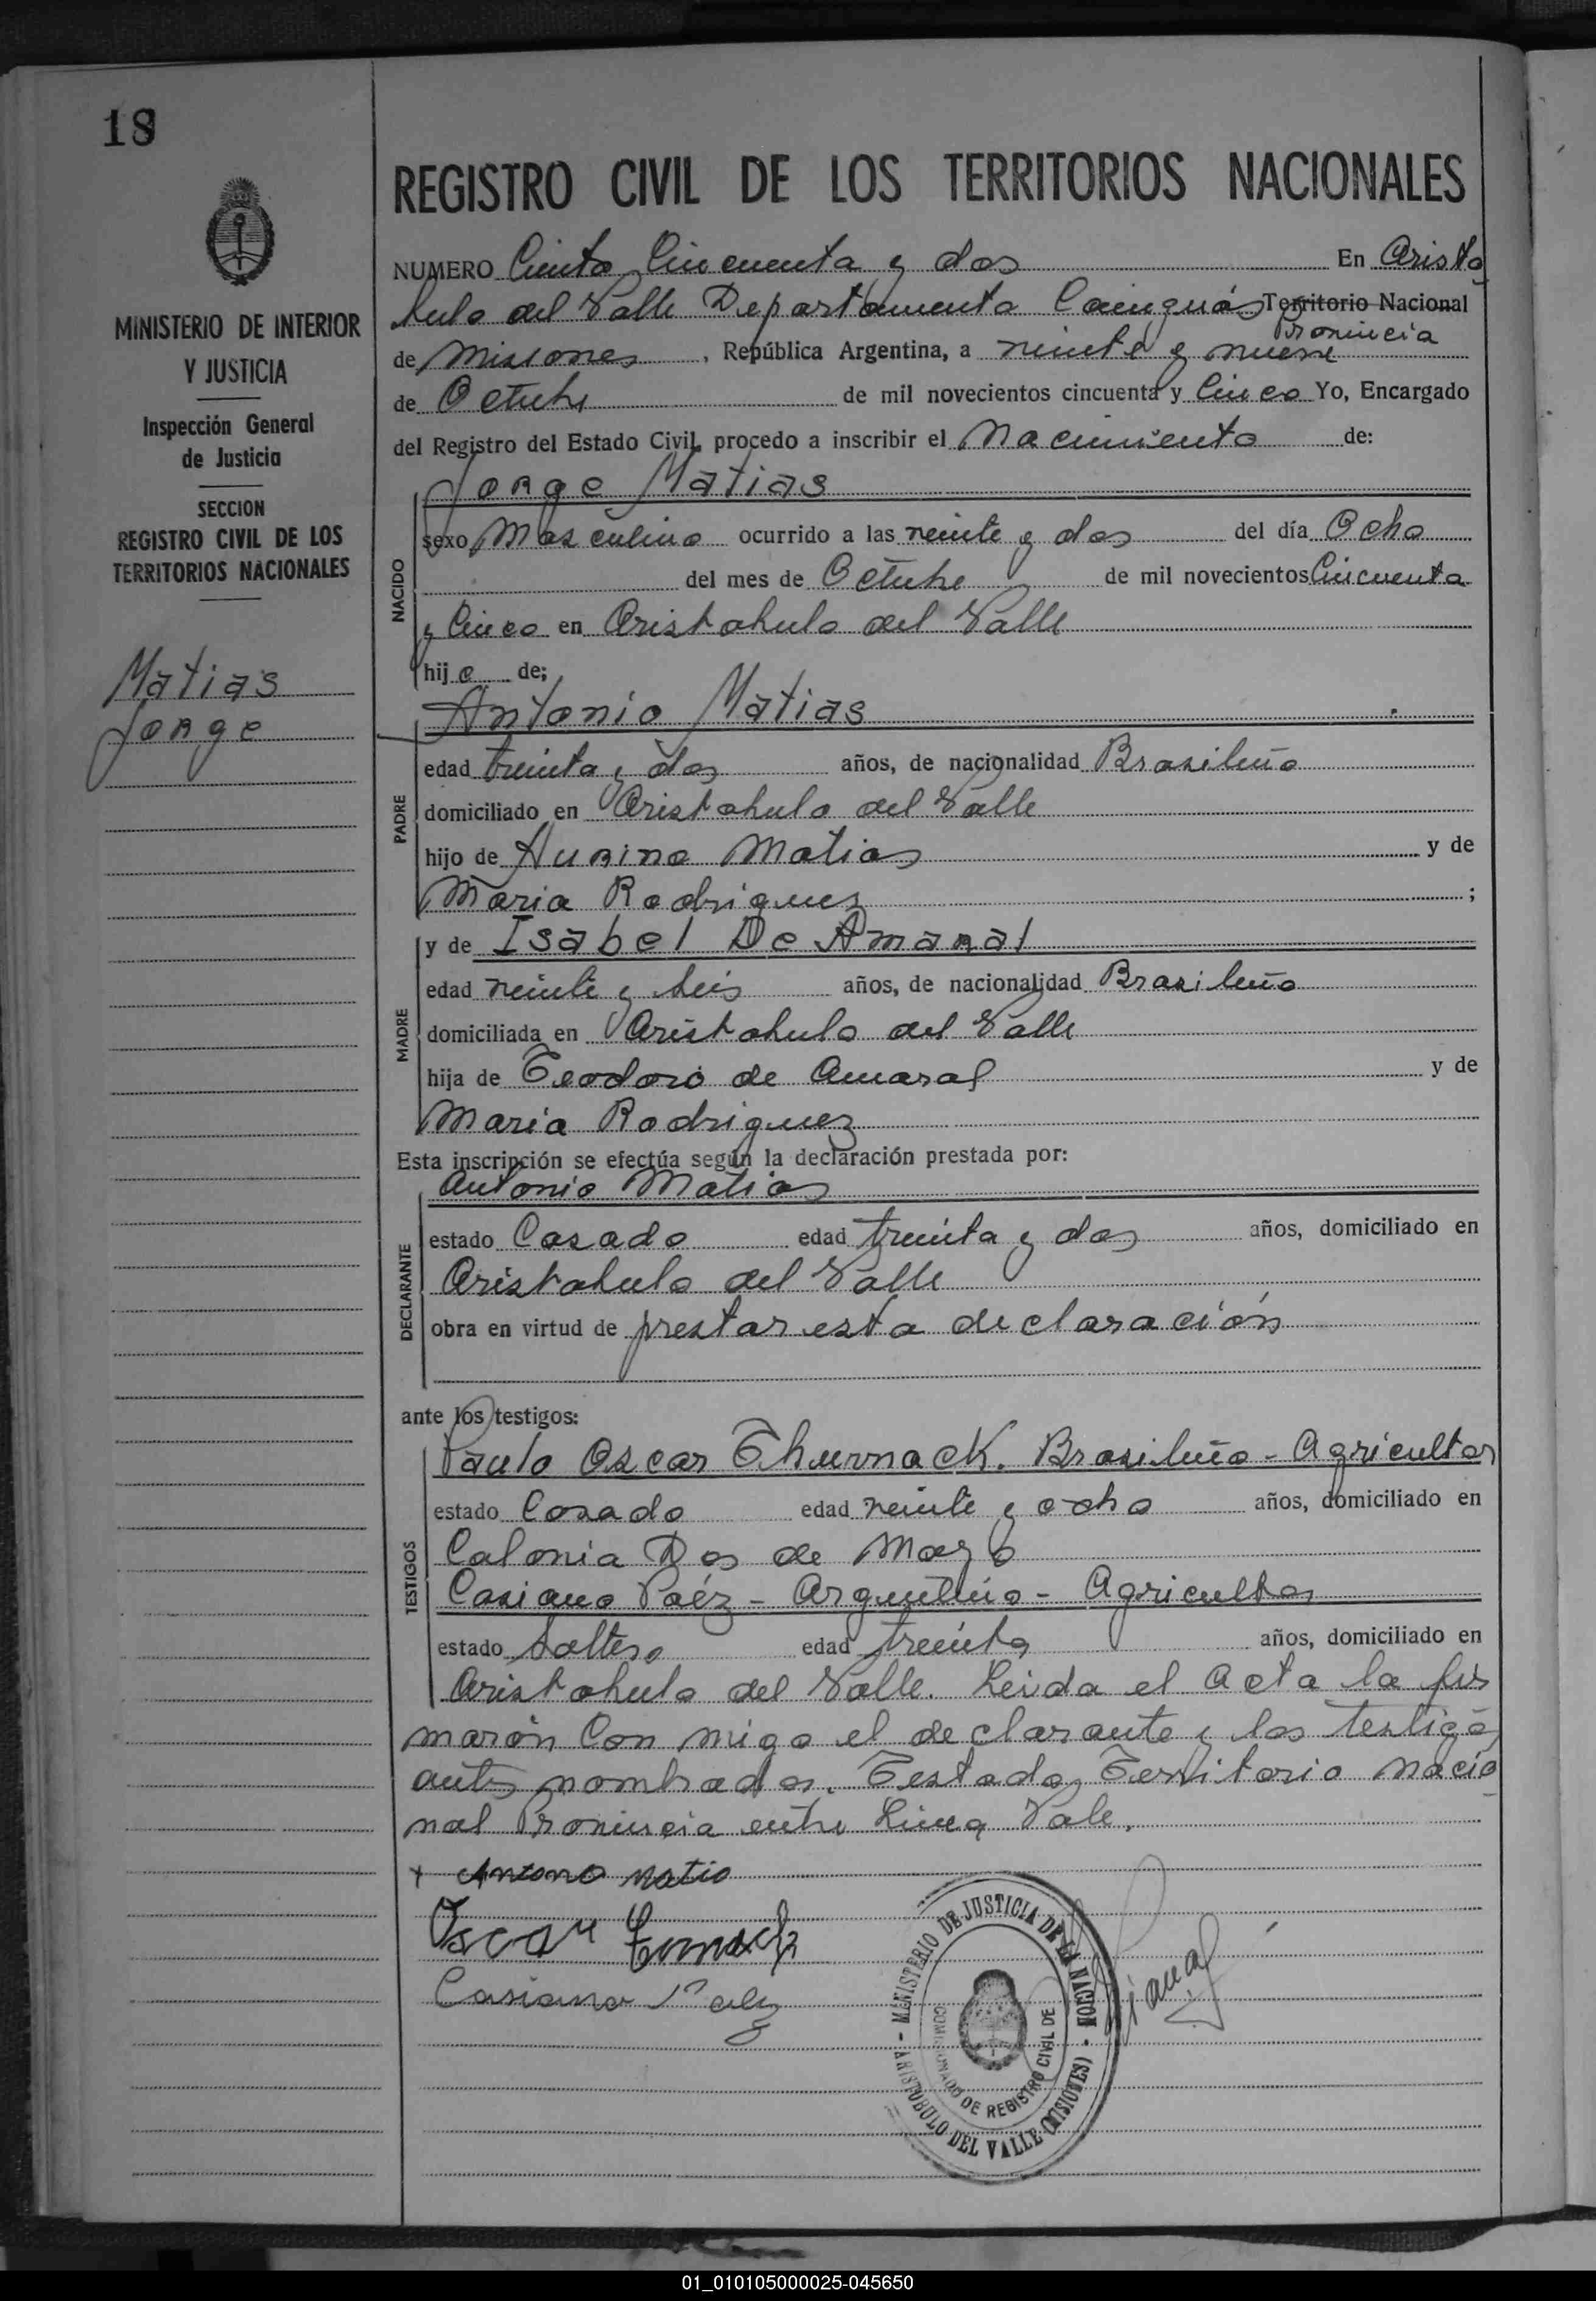 18
MINISTERIO DE INTERIOR
Y JUSTICIA
Inspección General
de Justicia
SECCION
REGISTRO CIVIL DE LOS
TERRITORIOS NACIONALES
Matias
Jorge
REGISTRO CIVIL DE LOS TERRITORIOS NACIONALES
NUMERO Ciento Cincuenta y dos En Aristo
bulo del Valle Departamento Cainguás Territorio Nacional
Provincia
de Misiones, República Argentina, a veinte y nueve
de Octubre de mil novecientos cincuenta y Cinco Yo, Encargado
del Registro del Estado Civil, procedo a inscribir el Nacimiento de:
Jorge Matias
NACIDO
sexo Masculino ocurrido a las veinte y dos del día Ocho
del mes de Octubre de mil novecientos Cincuenta
y Cinco en Aristobulo del Valle
hijo de;
Antonio Matias
PADRE
edad treinta y dos años, de nacionalidad Brasileño
domiciliado en Aristobulo del Valle
hijo de Matias y de
Maria Rodriguez ;
y de Isabel De Amaral
MADRE
edad veinte y seis años, de nacionalidad Brasileño
domiciliada en Aristobulo del Valle
hija de Teodoro de Amaral y de
Maria Rodriguez
Esta inscripción se efectúa según la declaración prestada por:
Antonio Matias
DECLARANTE
estado Casado edad treinta y dos años, domiciliado en
Aristobulo del Valle
obra en virtud de prestar esta declaración
ante los testigos:
TESTIGOS
Paulo Oscar Thurnack. Brasileño - Agricultor
estado Casado edad veinte y ocho años, domiciliado en
Colonia Dos de Mayo
Casiano Paéz - Argentino - Agricultor
estado Soltero edad treinta años, domiciliado en
Aristobulo del Valle. Leida el Acta la fir
marón Con migo el declarante y los testigo
antes nombrados. Testado Territorio Nacio
nal Provincia entre Linea Vale.
+ Antono Matio
Oscar
Casiano Paez
MINISTERIO DE JUSTICIA DE LA NACION
ARISTOBULO DEL VALLE (MISIONES)
COMISIONADO DE REGISTRO CIVIL DE
01_010105000025-045650